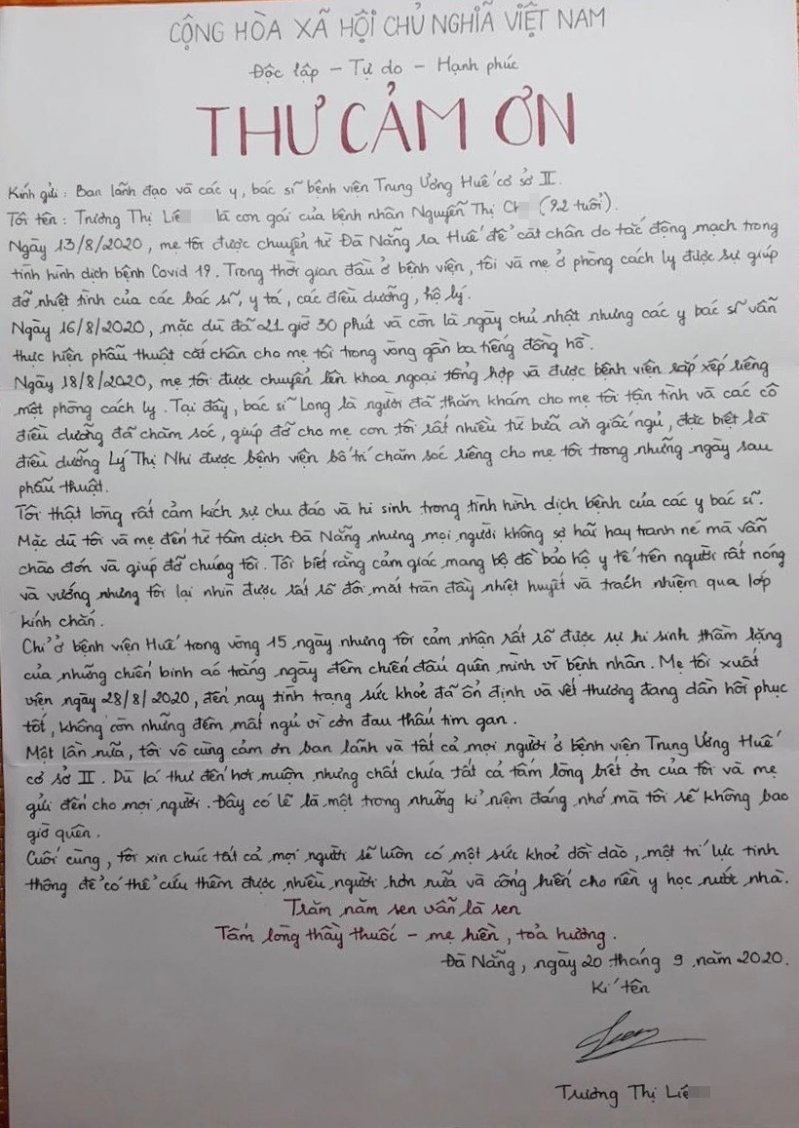 CỘNG HÒA XÃ HỘI CHỦ NGHĨA VIỆT NAM
Độc lập - Tự do - Hạnh phúc
THƯ CẢM ƠN
Kính gửi : Ban lãnh đạo và các y, bác sĩ bệnh viện Trung Ương Huế cơ sở II.
Tôi tên : Trương Thị Liê là con gái của bệnh nhân Nguyễn Thị Ch (92 tuổi).
Ngày 13/8/2020, mẹ tôi được chuyển từ Đà Nẵng ra Huế để cắt chân do tắc động mạch trong
tình hình dịch bệnh Covid 19. Trong thời gian đầu ở bệnh viện, tôi và mẹ ở phòng cách ly được sự giúp
đỡ nhiệt tình của các bác sĩ, y tá, các điều dưỡng, hộ lý.
Ngày 16/8/2020, mặc dù đã 21 giờ 30 phút và còn là ngày chủ nhật nhưng các y bác sĩ vẫn
thực hiện phẫu thuật cắt chân cho mẹ tôi trong vòng gần ba tiếng đồng hồ.
Ngày 18/8/2020, mẹ tôi được chuyển lên khoa ngoại tổng hợp và được bệnh viện sắp xếp riêng
một phòng cách ly. Tại đây, bác sĩ Long là người đã thăm khám cho mẹ tôi tận tình và các cô
điều dưỡng đã chăm sóc, giúp đỡ cho mẹ con tôi rất nhiều từ bữa ăn giấc ngủ, đặc biết là
điều dưỡng Lý Thị Nhi được bệnh viện bố trí chăm sóc riêng cho mẹ tôi trong những ngày sau
phẫu thuật.
Tôi thật lòng rất cảm kích sự chu đáo và hi sinh trong tình hình dịch bệnh của các y bác sĩ.
Mặc dù tôi và mẹ đến từ tâm dịch Đà Nẵng nhưng mọi người không sợ hãi hay tranh né mà vẫn
chào đón và giúp đỡ chúng tôi. Tôi biết rằng cảm giác mang bộ đồ bảo hộ y tế trên người rất nóng
và vướng nhưng tôi lại nhìn được rất rõ đôi mắt tràn đầy nhiệt huyết và trách nhiệm qua lớp
kính chắn.
Chỉ ở bệnh viện Huế trong vòng 15 ngày nhưng tôi cảm nhận rất rõ được sự hi sinh thầm lặng
của những chiến binh áo trắng ngày đêm chiến đấu quên mình vì bệnh nhân. Mẹ tôi xuất
viện ngày 28/8/2020, đến nay tình trạng sức khoẻ đã ổn định và vết thương đang dần hồi phục
tốt, không còn những đêm mất ngủ vì cơn đau thấu tim gan.
Một lần nữa, tôi vô cùng cảm ơn ban lãnh và tất cả mọi người ở bệnh viện Trung Ương Huế
cơ sở II. Dù lá thư đến hơi muộn nhưng chất chứa tất cả tấm lòng biết ơn của tôi và mẹ
gửi đến cho mọi người. Đây có lẽ là một trong những kỉ niệm đáng nhớ mà tôi sẽ không bao
giờ quên.
Cuối cùng, tôi xin chúc tất cả mọi người sẽ luôn có một sức khoẻ dồi dào, một trí lực tinh
thông để có thể cứu thêm được nhiều người hơn nữa và cống hiến cho nền y học nước nhà.
Trăm năm sen vẫn là sen
Tấm lòng thầy thuốc - mẹ hiền, toả hương.
Đà Nẵng, ngày 20 tháng 9 năm 2020.
Kí tên
Trương Thị Liê